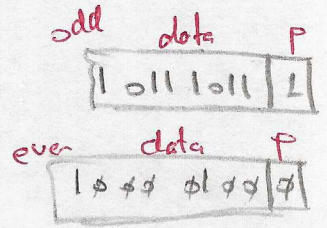 odd data P
1011 1011 1
even data P
1000 0100 0